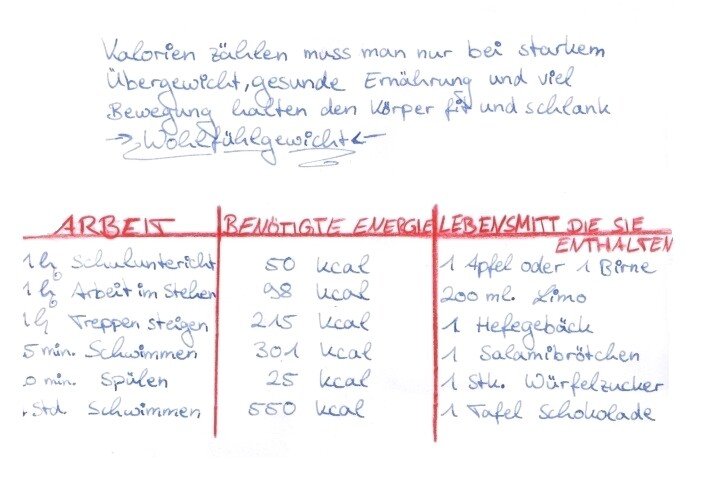 Kalorien zählen muss man nur bei starkem
Übergewicht, gesunde Ernährung und viel
Bewegung halten den Körper fit und schlank
→ Wohlfühlgewicht ←
ARBEIT BENÖTIGTE ENERGIE LEBENSMITT DIE SIE
ENTHALTEN
1 h Schulunterricht 50 kcal 1 Apfel oder 1 Birne
1 h Arbeit im Stehen 98 kcal 200 ml. Limo
1 h Treppen steigen 215 kcal 1 Hefegebäck
5 min. Schwimmen 301 kcal 1 Salamibrötchen
0 min. Spülen 25 kcal 1 Stk. Würfelzucker
. Std Schwimmen 550 kcal 1 Tafel Schokolade